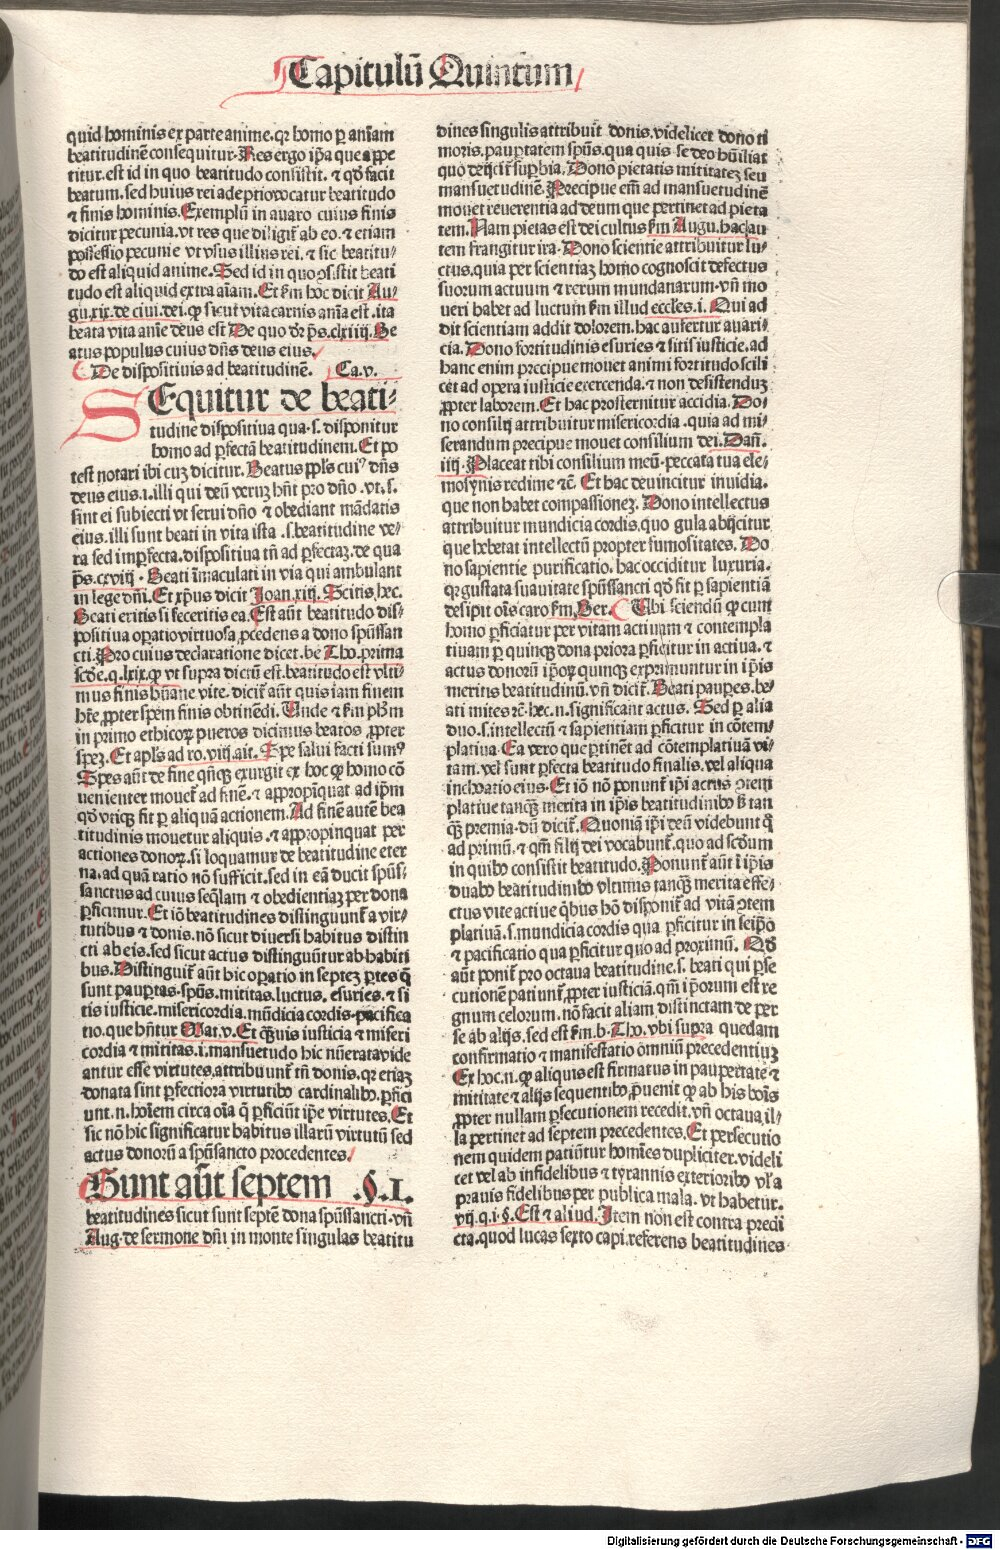 Capitulū Quintum
quid hominis ex parte anime. qꝛ homo ꝑ aīam
beatitudinē consequitur. Res ergo ip̄a que appe
titur. est id in quo beatitudo consistit. ⁊ qđ facit
beatum. sed huius rei adeptio vocatur beatitudo
⁊ finis hominis. Exemplū in auaro cuius finis
dicitur pecunia. vt res que diligiť ab eo. ⁊ etiam
possessio pecunie vt vsus illius rei. ⁊ sic beatitu-
do est aliquid anime. Sed id in quo ꝯsistit beati
tudo est aliquid extra aīam. Et ẜm hoc dicit Au-
gu. xix. de ciui. dei. ꝙ sicut vita carnis anīa est. ita
beata vita anīe deus est De quo dꝛ ps̄. cxliij. Be
atus populus cuius dn̄s deus eius.
De dispositiuis ad beatitudinē. Ca. v.
SEquitur de beati-
tudine dispositiua qua. s. disponitur
homo ad ꝑfectā beatitudinem. Et po
test notari ibi cuꝫ dicitur. Beatus ppl̄s cuiꝰ dn̄s
deus eius. i. illi qui deū veruꝫ hn̄t pro dn̄o. vt. s.
sint ei subiecti vt serui dn̄o ⁊ obediant mādatis
eius. illi sunt beati in vita ista. s. beatitudine ve-
ra sed imꝑfecta. dispositiua tn̄ ad ꝑfectaꝫ. de qua
ps̄. cxviij. Beati īmaculati in via qui ambulant
in lege dn̄i. Et xp̄us dicit Ioan. xiij. Scitis hec.
Beati eritis si feceritis ea. Est aūt beatitudo dis-
positiua oꝑatio virtuosa ꝓcedens a dono sp̄ussan
cti. Pro cuius declaratione dicet. be Tho. prima
scđe. q. lxix. ꝙ vt supra dictū est. beatitudo est vlti-
mus finis hūane vite. diciť aūt quis iam finem
hr̄e ꝓpter spem finis obtinēdi. Unde ⁊ ẜm ph̄m
in primo ethicoꝝ pueros dicimus beatos ꝓpter
speꝫ. Et apl̄s ad ro. viij. ait. Spe salui facti sumꝰ
Spes aūt de fine qn̄qꝫ exurgit ex hoc ꝙ homo cō
uenienter moueť ad finē. ⁊ appropīquat ad ip̄m
qđ vtiqꝫ fit ꝑ aliquā actionem. Ad finē autē bea
titudinis mouetur aliquis. ⁊ appropinquat per
actiones donoꝝ. si loquamur de beatitudine eter
na. ad quā ratio nō sufficit. sed in eā ducit sp̄us-
sanctus ad cuius seq̄lam ⁊ obedientiaꝫ per dona
ꝑficimur. Et iō beatitudines distinguunť a vir-
tutibus ⁊ donis. nō sicut diuersi habitus distin
cti ab eis. sed sicut actus distinguūtur ab habiti
bus. Distinguiť aūt hic oꝑatio in septeꝫ ꝑtes q̄
sunt pauꝑtas. sp̄us. mititas. luctus. esuries. ⁊ si
tis iusticie. misericordia. mūdicia cordis. pacifica
tio. que hn̄tur Mat. v. Et q̄uis iusticia ⁊ miseri
cordia ⁊ mititas. i. mansuetudo hic nūerata vide
antur esse virtutes. attribuunť tn̄ donis. qꝛ etiaꝫ
donata sint ꝑfectiora virtutibꝰ cardinalibꝰ. ꝑfici
unt. n. hoīem circa oīa q̄ ꝑficiūt ip̄e virtutes. Et
sic nō hic significatur habitus illarū virtutū sed
actus donorū a sp̄usancto procedentes.
Sunt aūt septem .§. I.
beatitudines sicut sunt septē dona sp̄ussancti. vn̄
Aug. de sermone dn̄i in monte singulas beatitu
dines singulis attribuit donis. videlicet dono ti
moris. pauꝑtatem sp̄us. qua quis se deo hūiliat
quo deijciť suꝑbia. Dono pietatis mititateꝫ seu
mansuetudinē. Precipue em̄ ad mansuetudinē
mouet reuerentia ad deum que pertinet ad pieta
tem. Nam pietas est dei cultus ẜm Augu. hac au
tem frangitur ira. Dono scientie attribuitur lu-
ctus. quia per scientiaꝫ homo cognoscit defectus
suorum actuum ⁊ rerum mundanarum. vn̄ mo
ueri habet ad luctum ẜm illud eccles. i. Qui ad
dit scientiam addit dolorem. hac aufertur auari-
cia. Dono fortitudinis esuries ⁊ sitis iusticie. ad
hanc enim precipue mouet animi fortitudo scili
cet ad opera iusticie exercenda. ⁊ non desistenduꝫ
ꝓpter laborem. Et hac prosternitur accidia. Do-
no consilij attribuitur misericordia. quia ad mi-
serandum precipue mouet consilium dei. Dan̄.
iiij. Placeat tibi consilium meū. peccata tua ele-
mosynis redime ⁊c̄. Et hac deuincitur inuidia.
que non habet compassioneꝫ. Dono intellectus
attribuitur mundicia cordis. quo gula abijcitur
que hebetat intellectū propter fumositates. Do
no sapientie purificatio. hac occiditur luxuria.
qꝛ gustata suauitate sp̄ussancti qđ fit ꝑ sapientiā
desipit oīs caro ẜm Ber. Ubi sciendū ꝙ cum
homo ꝑficiatur per vitam actiuam ⁊ contempla
tiuam ꝑ quinqꝫ dona priora ꝑficitur in actiua. ⁊
actus donorū ip̄oꝝ quinqꝫ exprimuntur in ip̄is
meritis beatitudinū. vn̄ diciť. Beati pauꝑes. be-
ati mites ⁊c̄. hec. n. significant actus. Sed ꝑ alia
duo. s. intellectū ⁊ sapientiam ꝑficitur in cōtem-
platiua. Ea vero que ꝑtinēt ad cōtemplatiuā vi-
tam. vel sunt ꝑfecta beatitudo finalis. vel aliqua
inchoatio eius. Et iō nō ponunť ip̄i actus ꝯtem
platiue tanqꝫ merita in ip̄is beatitudinibꝰ ẜ tan
q̄ꝫ premia. dū diciť. Quoniā ip̄i deū videbunt q̄
ad primū. ⁊ qm̄ filij dei vocabunť. quo ad scđum
in quibꝰ consistit beatitudo. Ponunť aūt ī ip̄is
duabꝰ beatitudinibꝰ vltimis tanqꝫ merita effe-
ctus vite actiue q̄bus hō disponiť ad vitā ꝯtem
platiuā. s. mundicia cordis qua ꝑficitur in seip̄o
⁊ pacificatio qua ꝑficitur quo ad proximū. Qđ
aūt poniť pro octaua beatitudine. s. beati qui ꝑse
cutionē patiunť ꝓpter iusticiā. qm̄ ip̄orum est re
gnum celorum. nō facit aliam distinctam de per
se ab alijs. sed est ẜm. b. Tho. vbi supra quedam
confirmatio ⁊ manifestatio omniū precedentiuꝫ
Ex hoc. n. ꝙ aliquis est firmatus in paupertate ⁊
mititate ⁊ alijs sequentibꝰ. ꝓuenit ꝙ ab his bōis
ꝓpter nullam ꝑsecutionem recedit. vn̄ octaua il-
la pertinet ad septem precedentes. Et persecutio
nem quidem patiūtur homīes dupliciter. videli
cet vel ab infidelibus ⁊ tyrannis exterioribꝰ vl̄ a
prauis fidelibus per publica mala. vt habetur.
vij. q. i. §. Est ⁊ aliud. Item non est contra predi
cta. quod lucas sexto capi. referens beatitudines
Digitalisierung gefördert durch die Deutsche Forschungsgemeinschaft - DFG